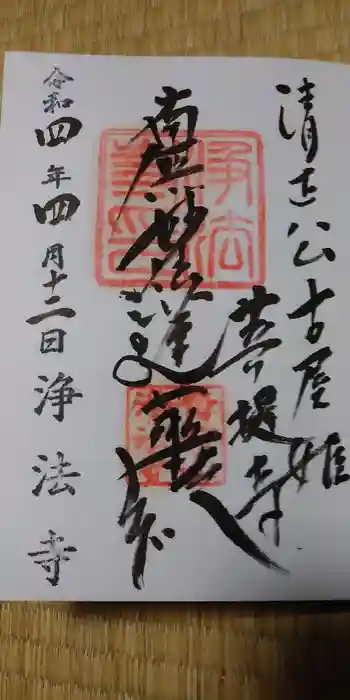 清正公古屋姫
菩提寺
南無妙法蓮華経
令和四年四月十二日
浄法寺